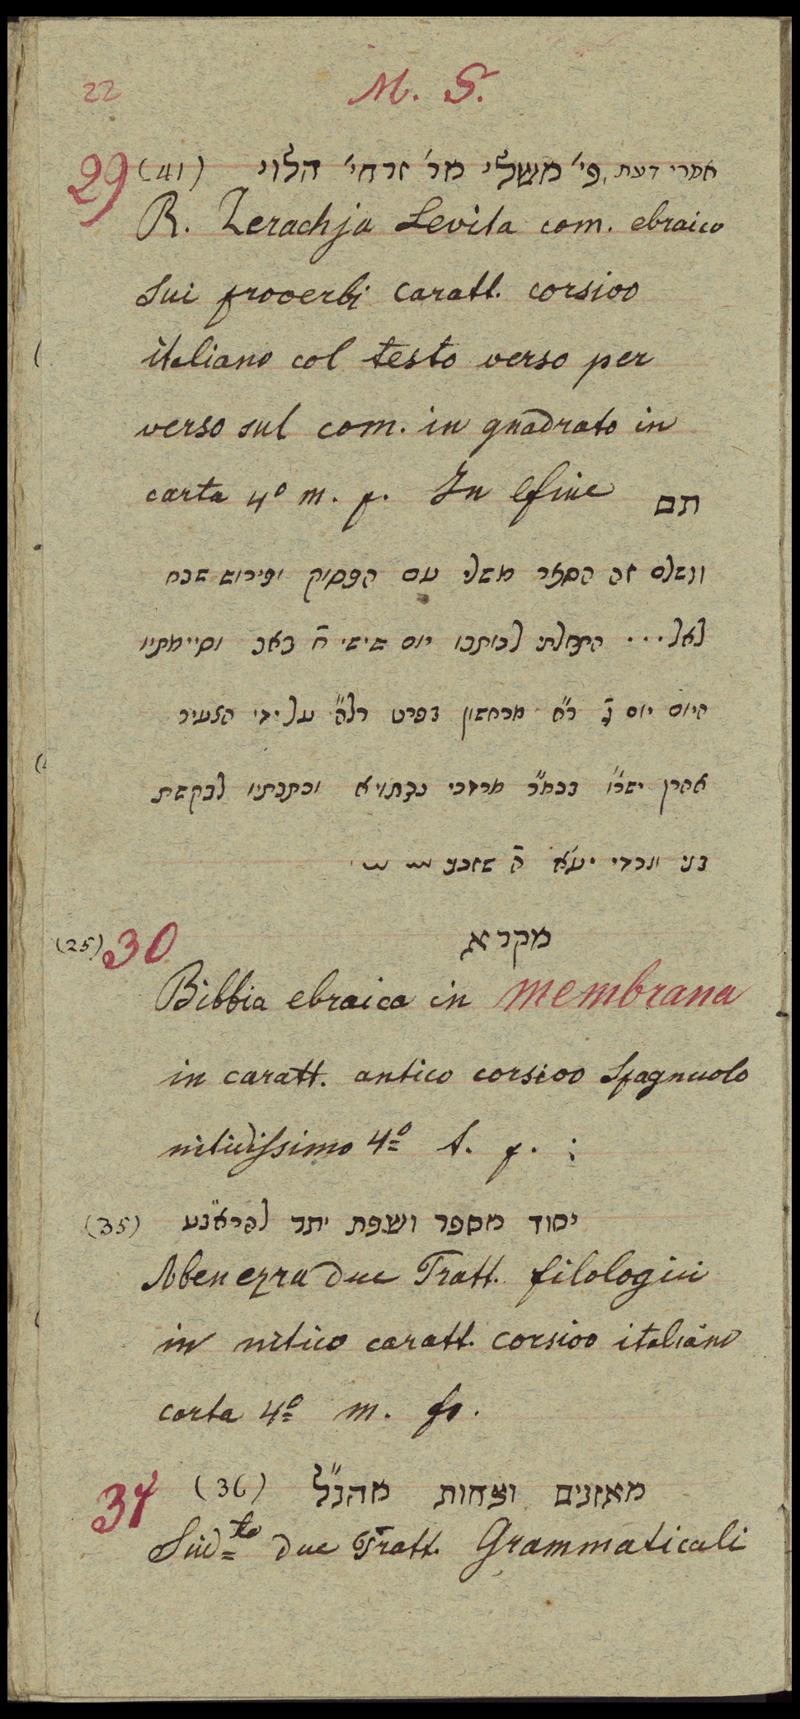 22 M. S.
29 (41) אמרי דעת, פי' משלי מר' זרחי' הלוי
R. Zerachja Levita com. ebraico
sui proverbi caratt. corsivo
italiano col testo verso per
verso sul com. in quadrato in
carta 4º m. p. In fine תם
ונשלם זה הספר משלי עם הפסוק ופירוש שבח
לאל... התחלתי לכותבו יום שישי ה' באב וסיימתיו
היום יום ב' ר"ח מרחשון בפרט רל"ה על ידי הצעיר
אהרן יצ"ו בכמ"ר מרדכי וכתבתיו לבקשת
(25) 30 מקרא
Bibbia ebraica in membrana
in caratt. antico corsivo Spagnuolo
nitidissimo 4º f. p. :
(35) יסוד מספר ושפת יתר להרא"בע
Abenezra due Tratt. filologici
in nitido caratt. corsivo italiano
carta 4º m. fo.
31 (36) מאזנים וצחות מהנ"ל
Sudto due Tratt. Grammaticali